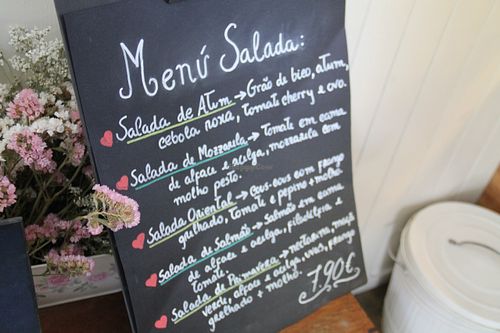 Menú Salada:
Salada de Atum → Grão de bico, atum,
cebola roxa, tomate cherry e ovo.
Salada de Mozzarela → Tomate em cama
de alface e acelga, mozzarela com
molho pesto.
Salada Oriental → Cous-cous com frango
grelhado, tomate e pepino + molho.
Salada de Salmão → Salmão em cama
de alface e acelga, philadelphia e
tomate.
Salada de Primavera → nectarina, maçã
verde, alface e acelga, uvas, frango
grelhado + molho.
7.90€